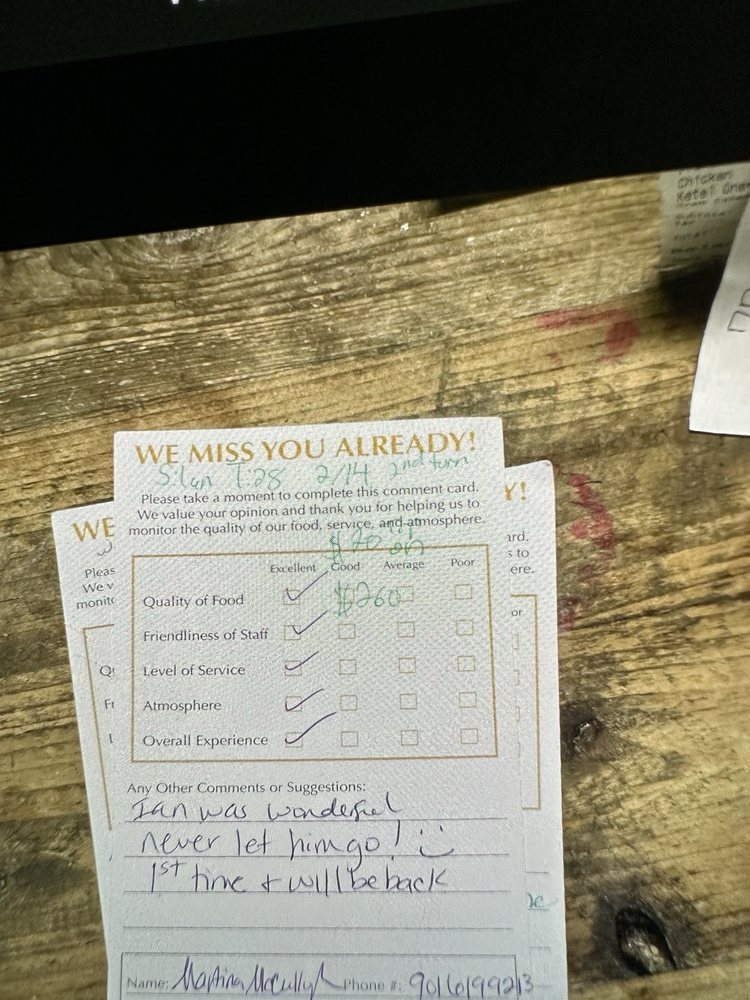 Chicken
Ketel One
Total
WE MISS YOU ALREADY!
T:28 2/14 2nd turn
Please take a moment to complete this comment card.
We value your opinion and thank you for helping us to
monitor the quality of our food, service, and atmosphere.
Excellent Good Average Poor
Quality of Food
$260
Friendliness of Staff
Level of Service
Atmosphere
Overall Experience
Any Other Comments or Suggestions:
Ian was wonderful
never let him go!
1st time & will be back
Name: Phone #: 9016199213
WE
Pleas
We v
monito
Y!
ard.
s to
ere.
or